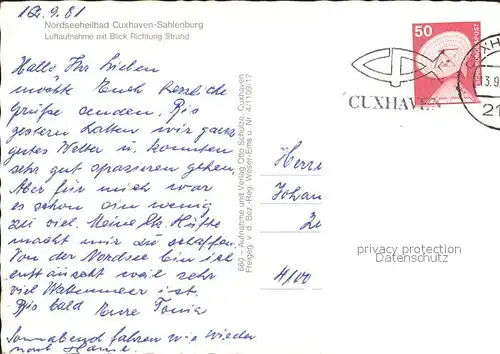 12.9.81
Nordseeheilbad Cuxhaven-Sahlenburg
Luftaufnahme mit Blick Richtung Strand
Hallo Ihr Lieben
möchte Euch herzliche
Grüße senden. Bis
gestern hatten wir ganz
gutes Wetter u. konnten
sehr gut spazieren gehen.
Aber für mich war
es schon ein wenig
zu viel. Meine Hüfte
macht mir zu schaffen.
Von der Nordsee bin ich
enttäuscht weil sehr
viel Wattenmeer ist.
Bis bald Eure Tonia
Sonnabend fahren wir wieder
nach Hause.
660 – Aufnahme und Verlag Otto Schulze, Cuxhaven
Freigeg. v. d. Bez.-Reg. Weser-Ems u. Nr. 4/1109/17
50
CUXHAVEN
CUXHA
13.9
21
Herrn
Johan
privacy protection
Datenschutz
4100